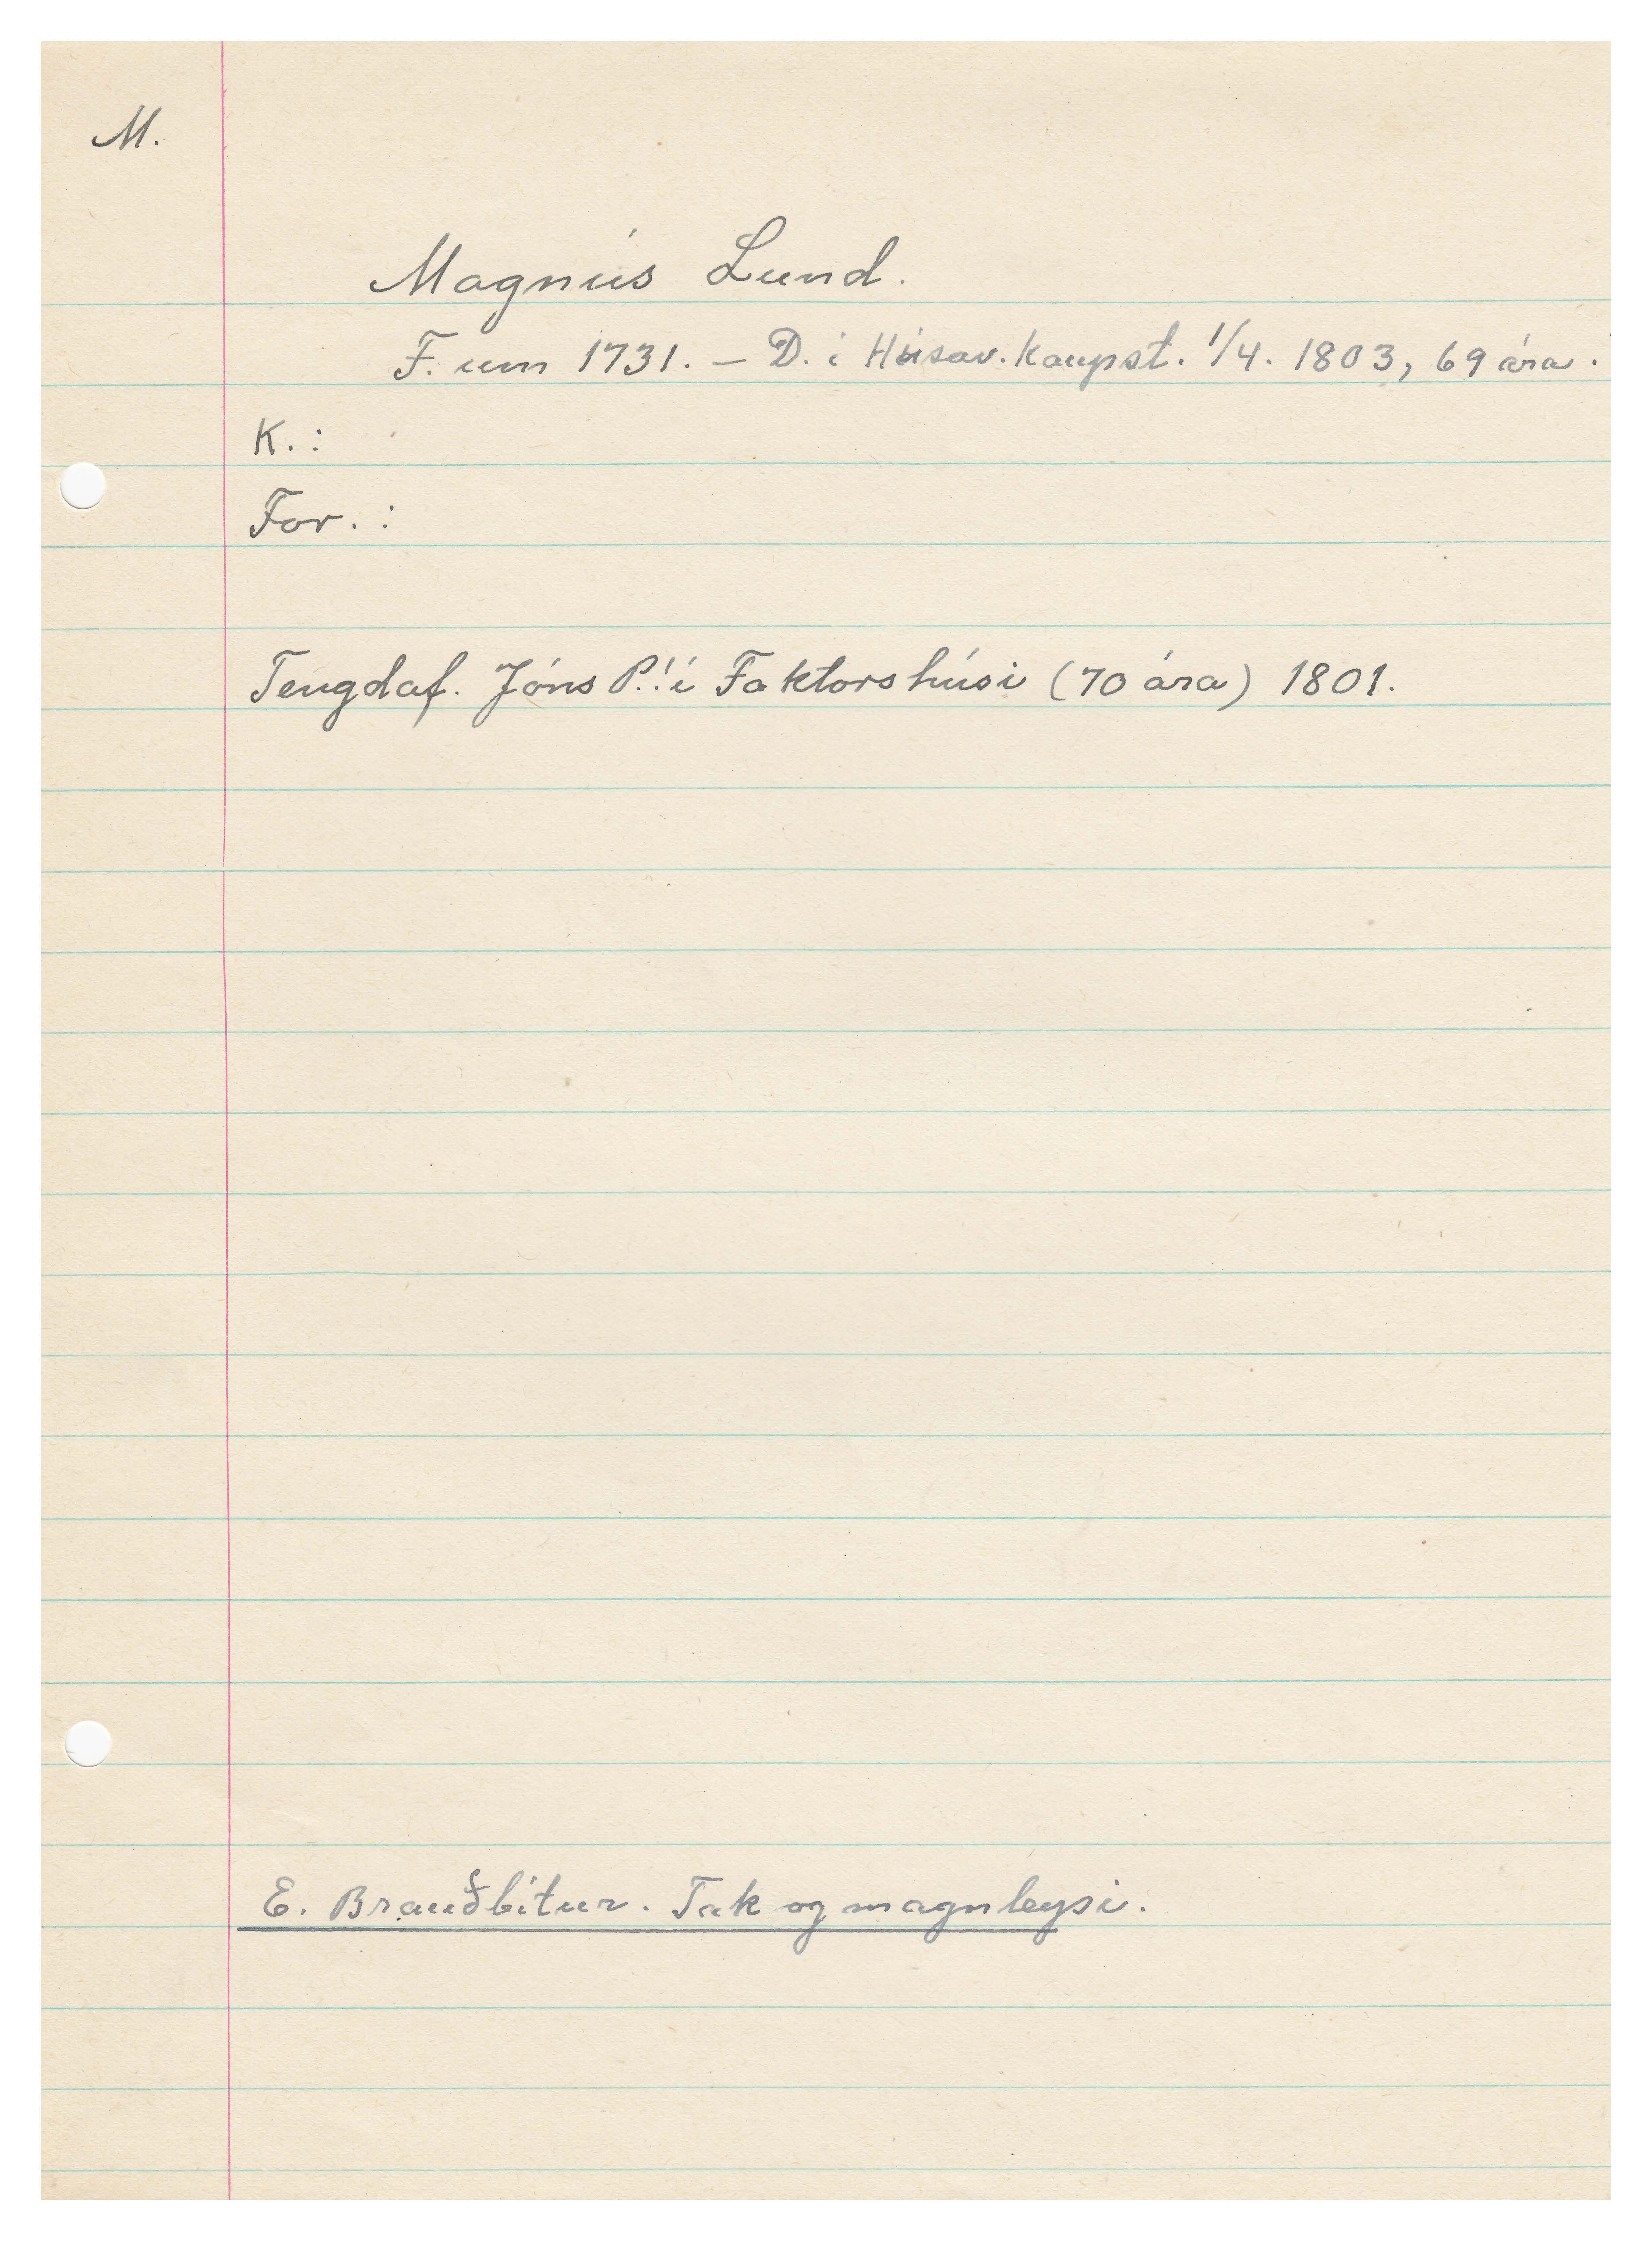 M.
Magnús Lund.
F. um 1731. – D. í Húsav. kaupst. 1/4. 1803, 69 ára.
K. :
For. :
Tengdaf. Jóns P.! í Faktorshúsi (70 ára) 1801.
E. Brauðbítur. Tak og magnleysi.